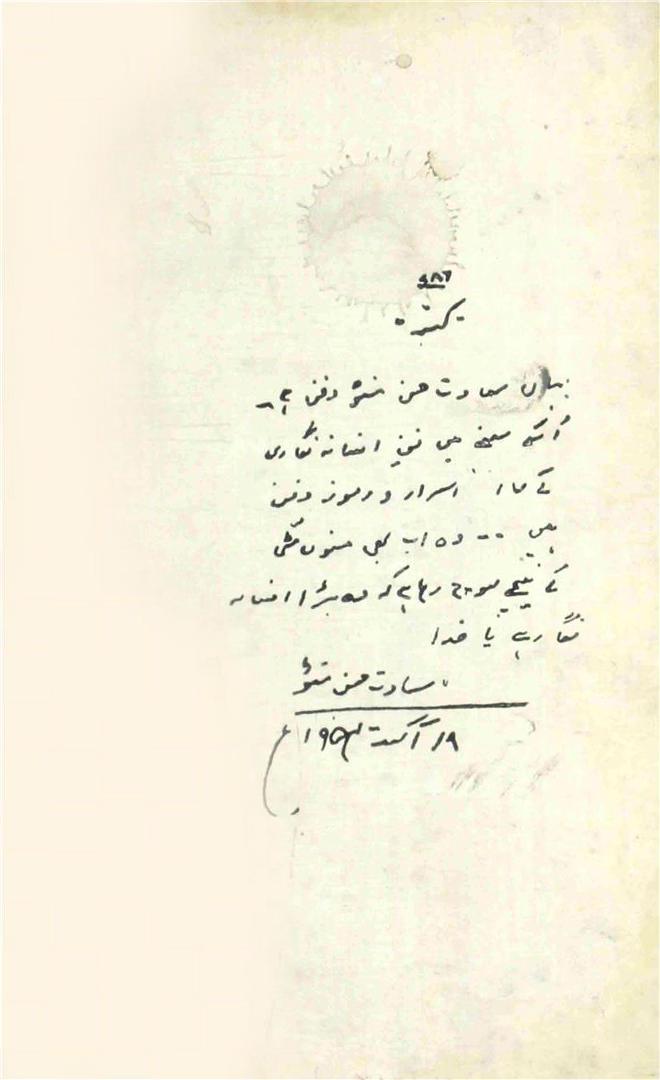 ۷۸۶
کتبہ
یہاں سعادت حسن منٹو دفن ہے۔
اُسکے سینے میں فنِ افسانہ نگاری
کے اسرار و رموز دفن
ہیں -- وہ اب بھی منوں مٹی
کے نیچے سوچ رہا ہے کہ وہ بڑا افسانہ
نگار ہے یا خدا
سعادت حسن منٹو
۱۸ اگست ۱۹۵۴ء